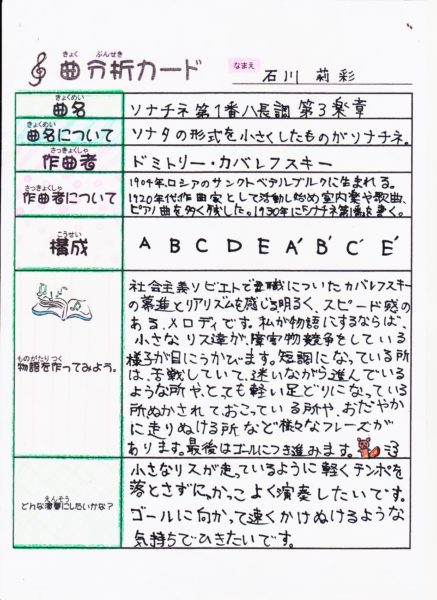 きょく ぶんせき
曲分析カード
なまえ
石川 莉彩
きょくめい
曲名
ソナチネ第1番ハ長調 第3楽章
きょくめい
曲名について
ソナタの形式を小さくしたものがソナチネ。
さっきょくしゃ
作曲者
ドミトリー・カバレフスキー
さっきょくしゃ
作曲者について
1904年、ロシアのサンクトペテルブルクに生まれる。
1920年代作曲家として活動し始め室内楽や歌曲、
ピアノ曲を多く残した。1930年にソナチネ第1番を書く。
こうせい
構成
A B C D E A′ B′ C′ E′
ものがたり つく
物語を作ってみよう。
社会主義ソビエトで要職についたカバレフスキー
の前進とリアリズムを感じる明るく、スピード感の
ある、メロディです。私が物語にするならば、
小さなリス達が、障害物競争をしている
様子が目にうかびます。短調になっている所
は、苦戦していて、迷いながら進んでいる
ような所や、とても軽い足どりになっている
所ぬかされて、おこっている所や、おだやか
に走りぬける所など様々なフレーズが
あります。最後はゴールにつき進みます。
えんそう
どんな演奏にしたいかな?
小さなリスが走っているように軽くテンポを
落とさずにかっこよく演奏したいです。
ゴールに向かって速くかけぬけるような
気持ちでひきたいです。